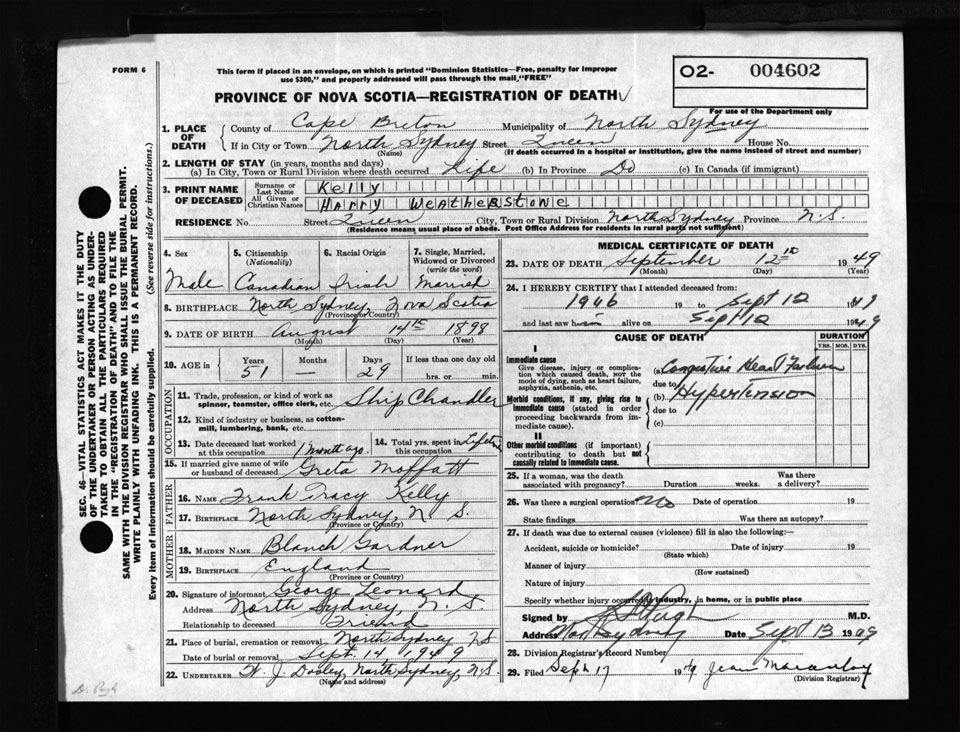 FORM 6
This form if placed in an envelope, on which is printed "Dominion Statistics—Free, penalty for improper
use $300," and properly addressed will pass through the mail "FREE"
O2- 004602
For use of the Department only
PROVINCE OF NOVA SCOTIA—REGISTRATION OF DEATH
1. PLACE OF DEATH
County of Cape Breton Municipality of North Sydney
If in City or Town North Sydney Street Queen House No.
(Name) (If death occurred in a hospital or institution, give the name instead of street and number)
2. LENGTH OF STAY (in years, months and days)
(a) In City, Town or Rural Division where death occurred Life (b) In Province Do (c) In Canada (if immigrant)
3. PRINT NAME OF DECEASED
Surname or Last Name Kelly
All Given or Christian Names Harry Weatherstone
RESIDENCE No. Street Queen City, Town or Rural Division North Sydney Province N.S.
(Residence means usual place of abode. Post Office Address for residents in rural parts not sufficient)
4. Sex 5. Citizenship (Nationality) 6. Racial Origin 7. Single, Married, Widowed or Divorced (write the word)
Male Canadian Irish Married
8. BIRTHPLACE North Sydney, Nova Scotia
(Province or Country)
9. DATE OF BIRTH August 14th 1898
(Month) (Day) (Year)
10. AGE in Years Months Days If less than one day old
51 — 29 hrs. or min.
OCCUPATION
11. Trade, profession, or kind of work as spinner, teamster, office clerk, etc. Ship Chandler
12. Kind of industry or business, as cotton-mill, lumbering, bank, etc.
13. Date deceased last worked at this occupation 1 month ago. 14. Total yrs. spent in this occupation Lifetime
15. If married give name of wife or husband of deceased Greta Moffatt
FATHER
16. NAME Frank Tracy Kelly
17. BIRTHPLACE North Sydney, N. S.
(Province or Country)
MOTHER
18. MAIDEN NAME Blanch Gardner
19. BIRTHPLACE England
(Province or Country)
20. Signature of informant George Leonard
Address North Sydney, N. S.
Relationship to deceased Friend
21. Place of burial, cremation or removal North Sydney NS
Date of burial or removal Sept. 14 1949
22. UNDERTAKER W. J. Dooley, North Sydney, N.S.
(Name and address)
MEDICAL CERTIFICATE OF DEATH
23. DATE OF DEATH September 12th 1949
(Month) (Day) (Year)
24. I HEREBY CERTIFY that I attended deceased from:
1946 19 to Sept 12 1949
and last saw him alive on Sept 12 1949
CAUSE OF DEATH DURATION
YRS. MOS. DYS.
I
Immediate cause
Give disease, injury or complication which caused death, NOT the mode of dying, such as heart failure, asphyxia, asthenia, etc.
(a) Congestive Heart Failure
due to
Morbid conditions, if any, giving rise to immediate cause (stated in order proceeding backwards from immediate cause).
(b) Hypertension
due to
(c)
II
Other morbid conditions (if important) contributing to death but not causally related to immediate cause.
25. If a woman, was the death associated with pregnancy? Duration weeks. Was there a delivery?
26. Was there a surgical operation? No Date of operation 19
State findings Was there an autopsy?
27. If death was due to external causes (violence) fill in also the following:—
Accident, suicide or homicide? Date of injury 19
(State which)
Manner of injury
(How sustained)
Nature of injury
Specify whether injury occurred in industry, in home, or in public place
Signed by Pugh M.D.
Address North Sydney Date Sept 13 1949
28. Division Registrar's Record Number
29. Filed Sept 17 1949 Jean
(Division Registrar)
SEC. 46—VITAL STATISTICS ACT MAKES IT THE DUTY
OF THE UNDERTAKER OR PERSON ACTING AS UNDER-
TAKER TO OBTAIN ALL THE PARTICULARS REQUIRED
IN THE "REGISTRATION OF DEATH" AND TO FILE THE
SAME WITH THE DIVISION REGISTRAR WHO SHALL ISSUE THE BURIAL PERMIT.
WRITE PLAINLY WITH UNFADING INK. THIS IS A PERMANENT RECORD.
Every item of information should be carefully supplied. (See reverse side for instructions.)
Dr. Pugh